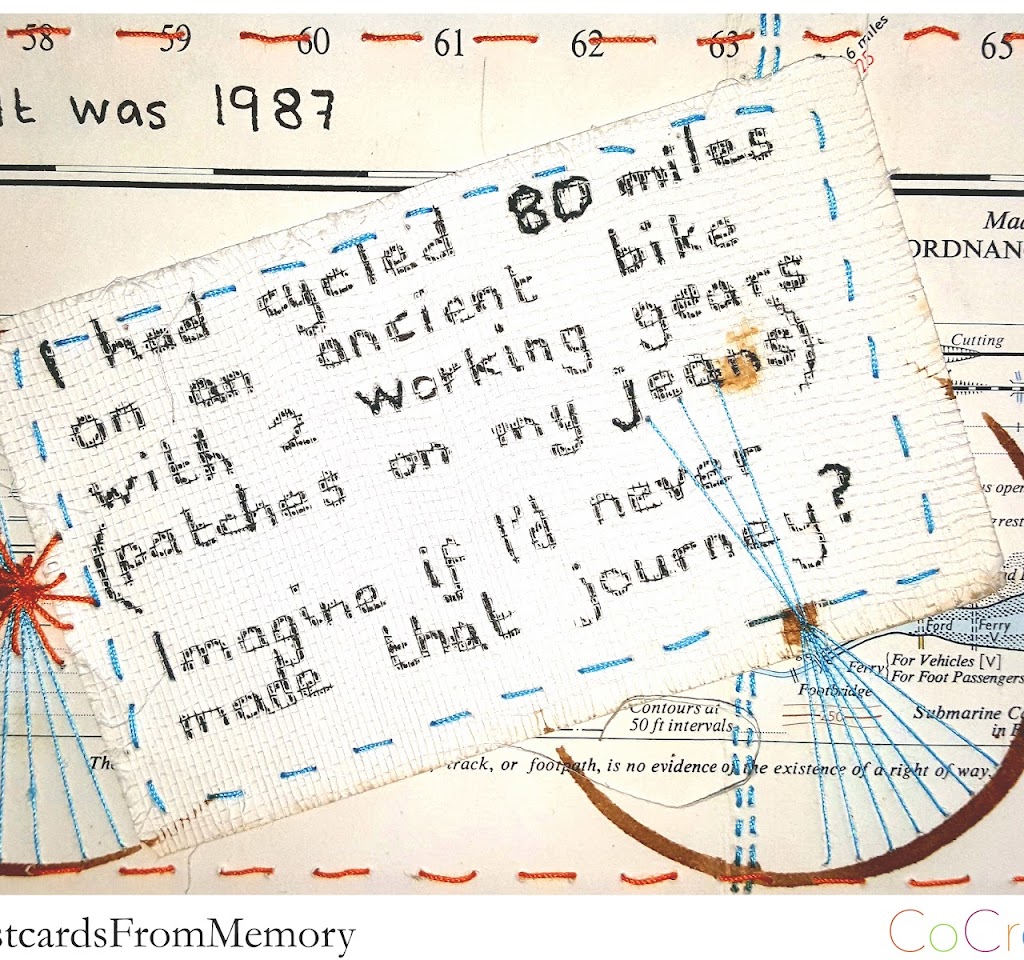 58 59 60 61 62 63 65
6 miles
25
It was 1987
I had cycled 80 miles
on an ancient bike
with 2 working gears
(patches on my jeans)
Imagine if I'd never
made that journey?
ORDNAN
Cutting
Ford Ferry
V
Ferry For Vehicles [V]
For Foot Passengers
Footbridge
250
Submarine
in
Contours at
50 ft intervals
track, or footpath, is no evidence of the existence of a right of way.
stcardsFromMemory
CoCre